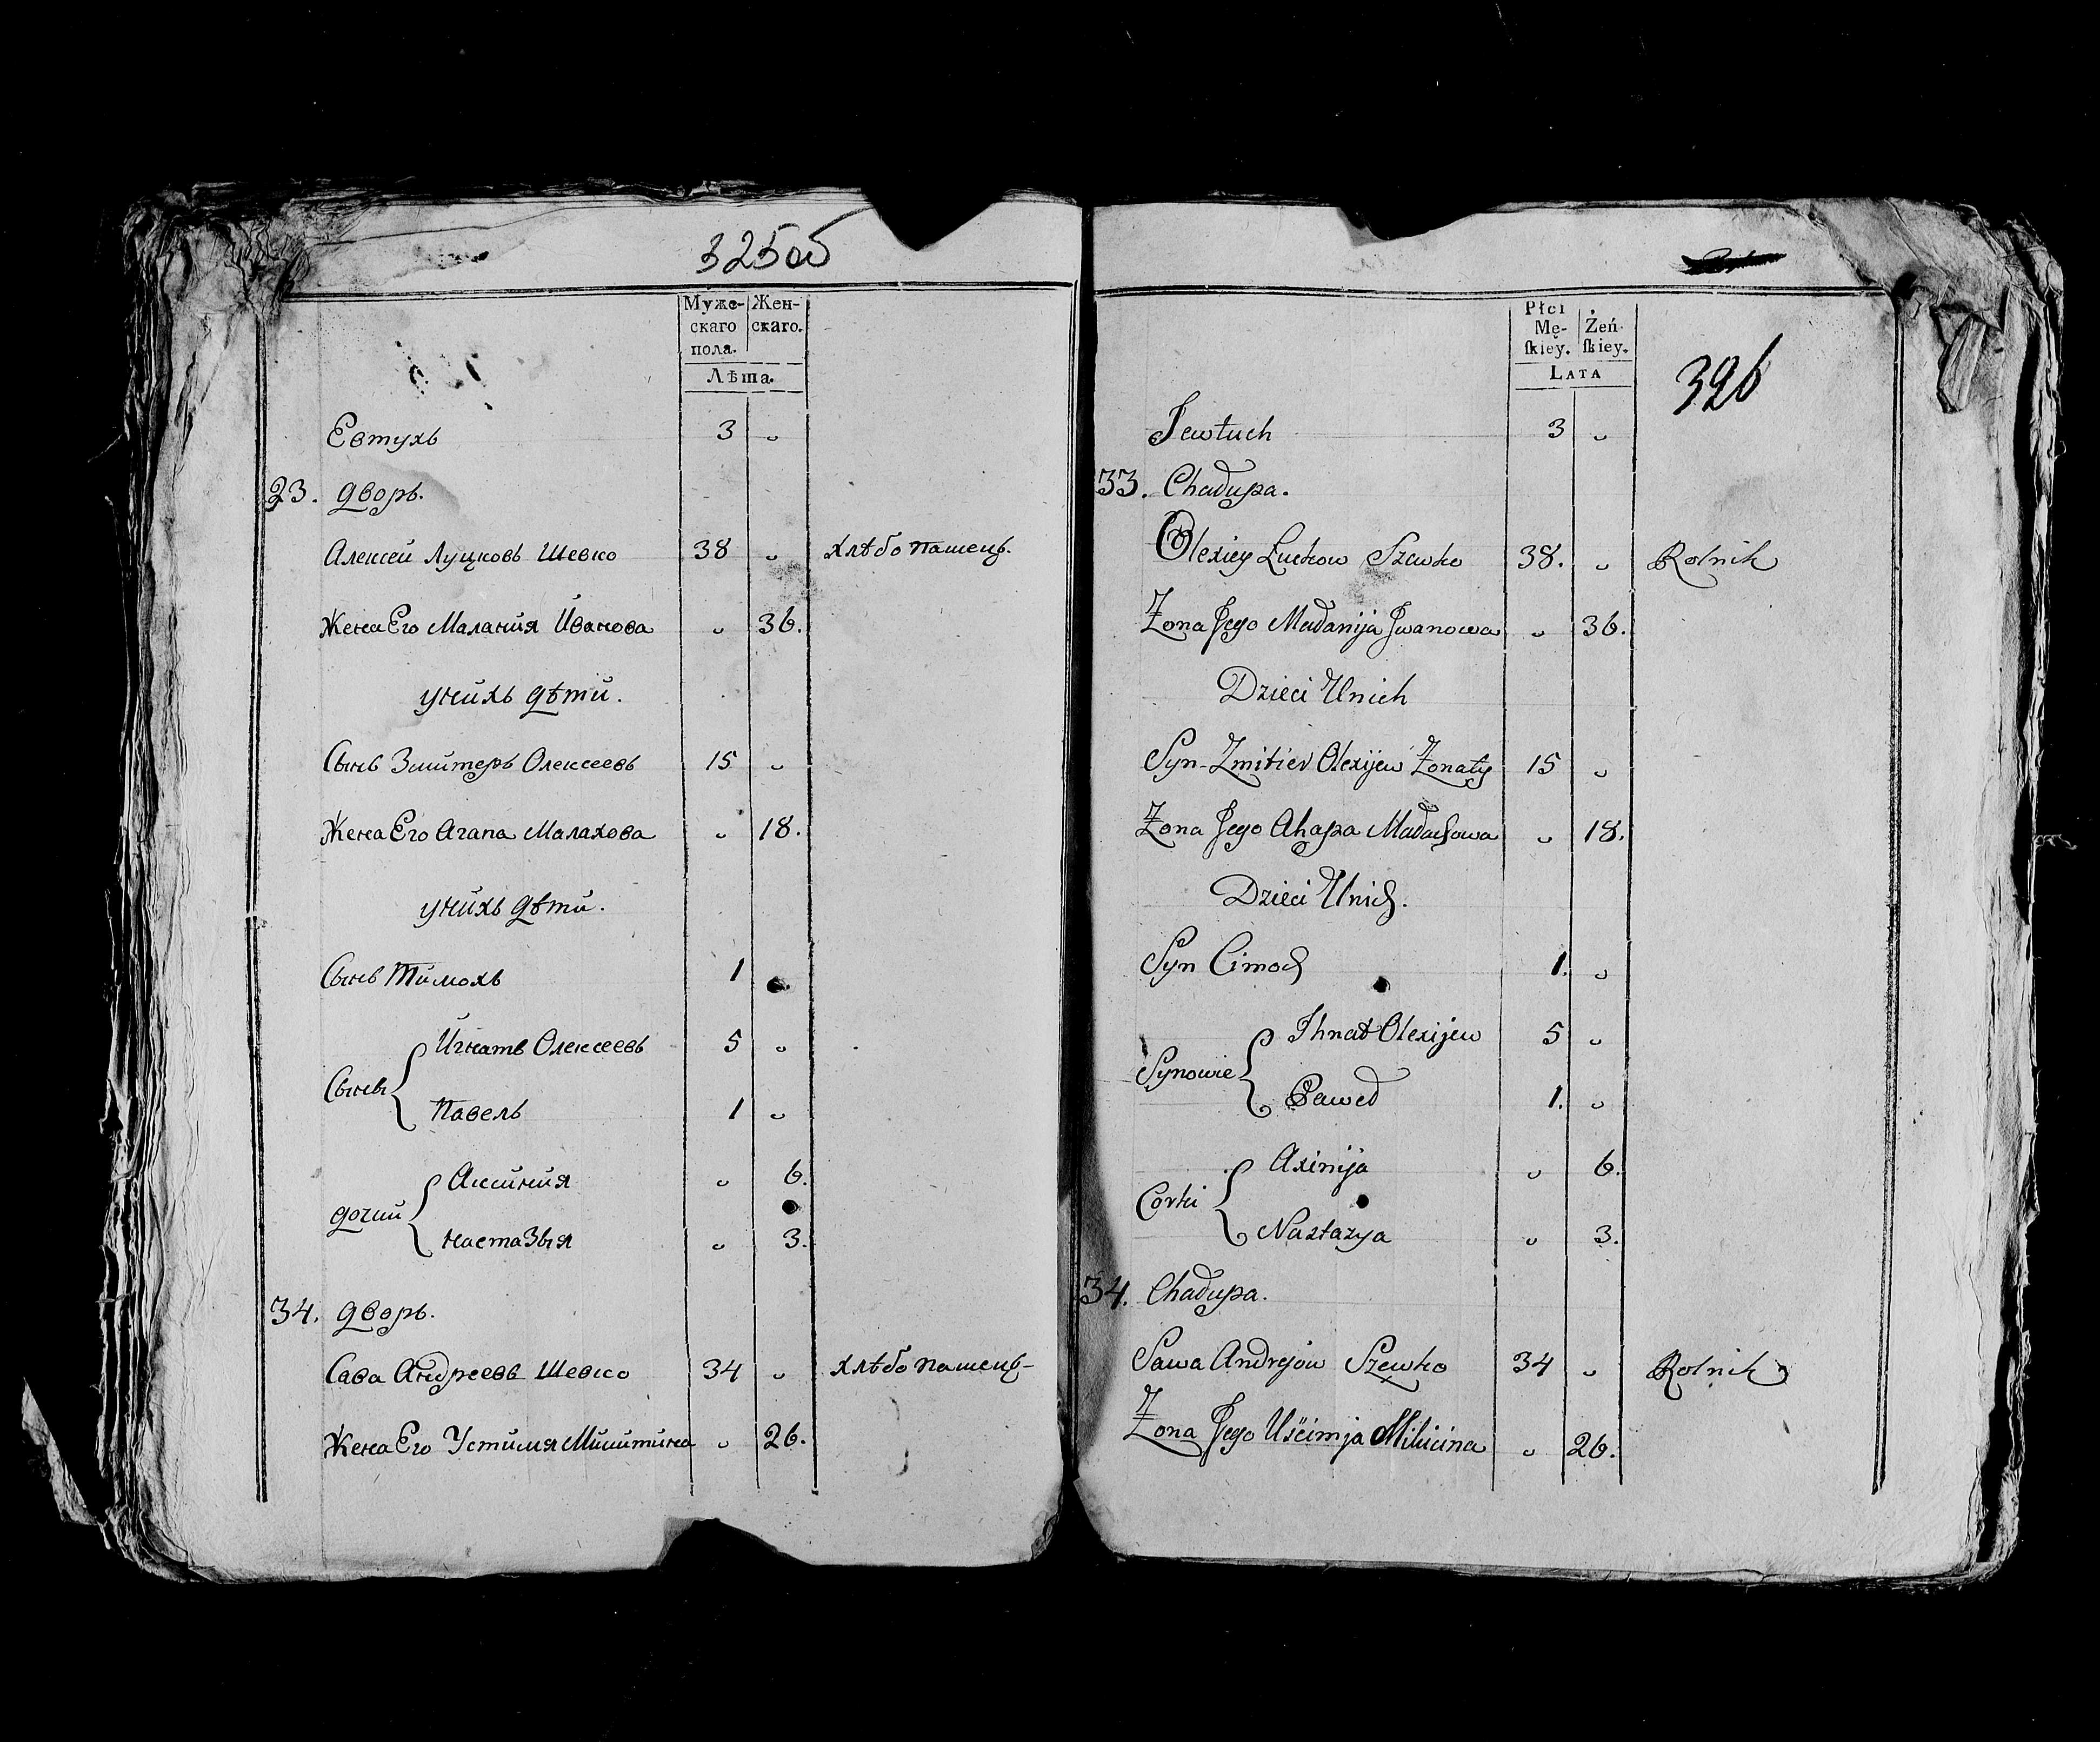 325об
Муже- Жен-
скаго скаго.
пола.
Лѣта.
Евтухъ 3 „
23. дворъ.
Алексей Луцковъ Шевко 38 „ хлѣбопашецъ.
Жена Его Малания Иванова „ 36.
унихъ дѣти.
Сынъ Змитеръ Олексеевъ 15 „
Жена Его Агапа Малахова „ 18.
унихъ дѣти.
Сынъ Тимохъ 1 „
Сынъи { Игнатъ Олексеевъ 5 „
Павелъ 1 „
дочии { Аксиния „ 6.
настазыя „ 3.
34. дворъ.
Сава Андреевъ Шевко 34 „ хлѣбопашецъ-
Жена Его Устимя Микитина „ 26.
Płci
Mę- Żeń-
ſkiey. ſkiey.
LATA
326
Jewtuch 3 „
33. Chałupa.
Olexiey Łuckow Szewko 38. „ Rolnik
Żona Jego Małanija Jwanowa „ 36.
Dzieci Unich
Syn-Zmitier Olexijew Żonaty 15 „
Żona Jego Ahapa Małachowa „ 18.
Dzieci Unich.
Syn Cimoch 1. „
Synowie { Ihnat Olexijew 5 „
Paweł 1. „
Corki { Axinija „ 6.
Nastazya „ 3.
34. Chałupa.
Sawa Andrejów Szewko 34 „ Rolnik
Żona Jego Uścimja Mikicina „ 26.